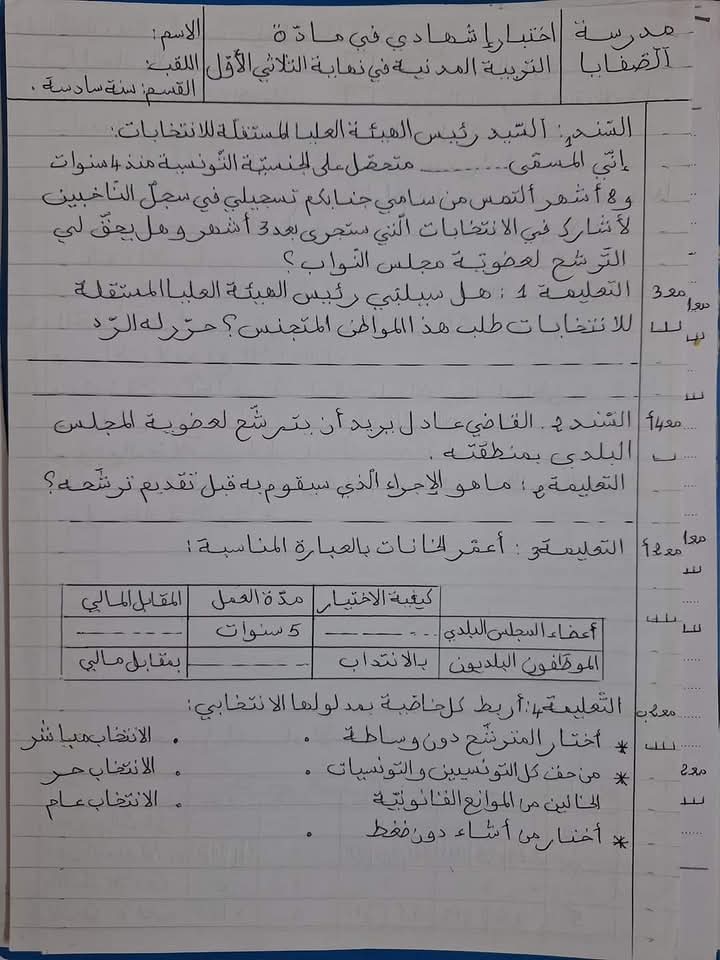 مدرسة الصفايا
اختبار إشهادي في مادّة
التربية المدنية في نهاية الثلاثي الأوّل
الاسم:
اللقب:
القسم: سنة سادسة.
السّند1: السّيد رئيس الهيئة العليا المستقلّة للانتخابات:
إنّي المسمّى ........... متحصّل على الجنسيّة التّونسية منذ 4 سنوات
و 8 أشهر ألتمس من سامي جنابكم تسجيلي في سجلّ النّاخبين
لأشارك في الانتخابات الّتي ستجرى بعد 3 أشهر وهل يحقّ لي
التّرشّح لعضويّة مجلس النّواب؟
التعليمة 1: هل سيلبّي رئيس الهيئة العليا المستقلة
للانتخابات طلب هذا المواطن المتجنس؟ حرّر له الرّد
السّند 2. القاضي عادل يريد أن يترشّح لعضوية المجلس
البلدي بمنطقته.
التعليمة 2: ما هو الإجراء الّذي سيقوم به قبل تقديم ترشّحه؟
التعليمة 3: أعمّر الخانات بالعبارة المناسبة:
كيفية الاختيار مدّة العمل المقابل المالي
أعضاء المجلس البلدي -------- 5 سنوات --------
الموظّفون البلديون بالانتداب -------- بمقابل مالي
التّعليمة 4: أربط كل خاصّية بمدلولها الانتخابي:
* أختار المترشّح دون وساطة . . الانتخاب مباشر
* من حق كل التونسيين والتونسيات . . الانتخاب حر
الخالين من الموانع القانونيّة . الانتخاب عام
* أختار من أشاء دون ضغط .
مع3
مع1
مع4أ
مع1
مع2أ
مع2ب
مع2